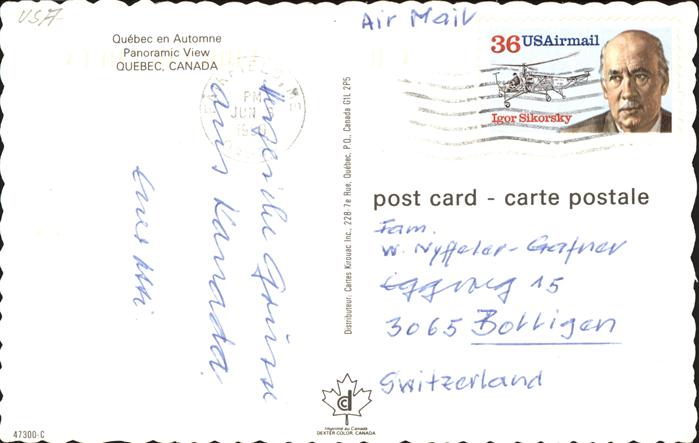 USA
Québec en Automne
Panoramic View
QUEBEC, CANADA
Air Mail
36 USAirmail
Igor Sikorsky
PM
JUN
Herzliche Grüsse
aus Kanada
Distributeur: Cartes Kirouac Inc., 228-7e Rue, Québec, P.Q., Canada G1L 2P5
post card - carte postale
Fam.
W. Nyffeler-Gafner
Eggweg 15
3065 Bolligen
Switzerland
Imprimé au Canada
DEXTER COLOR, CANADA
47300-C